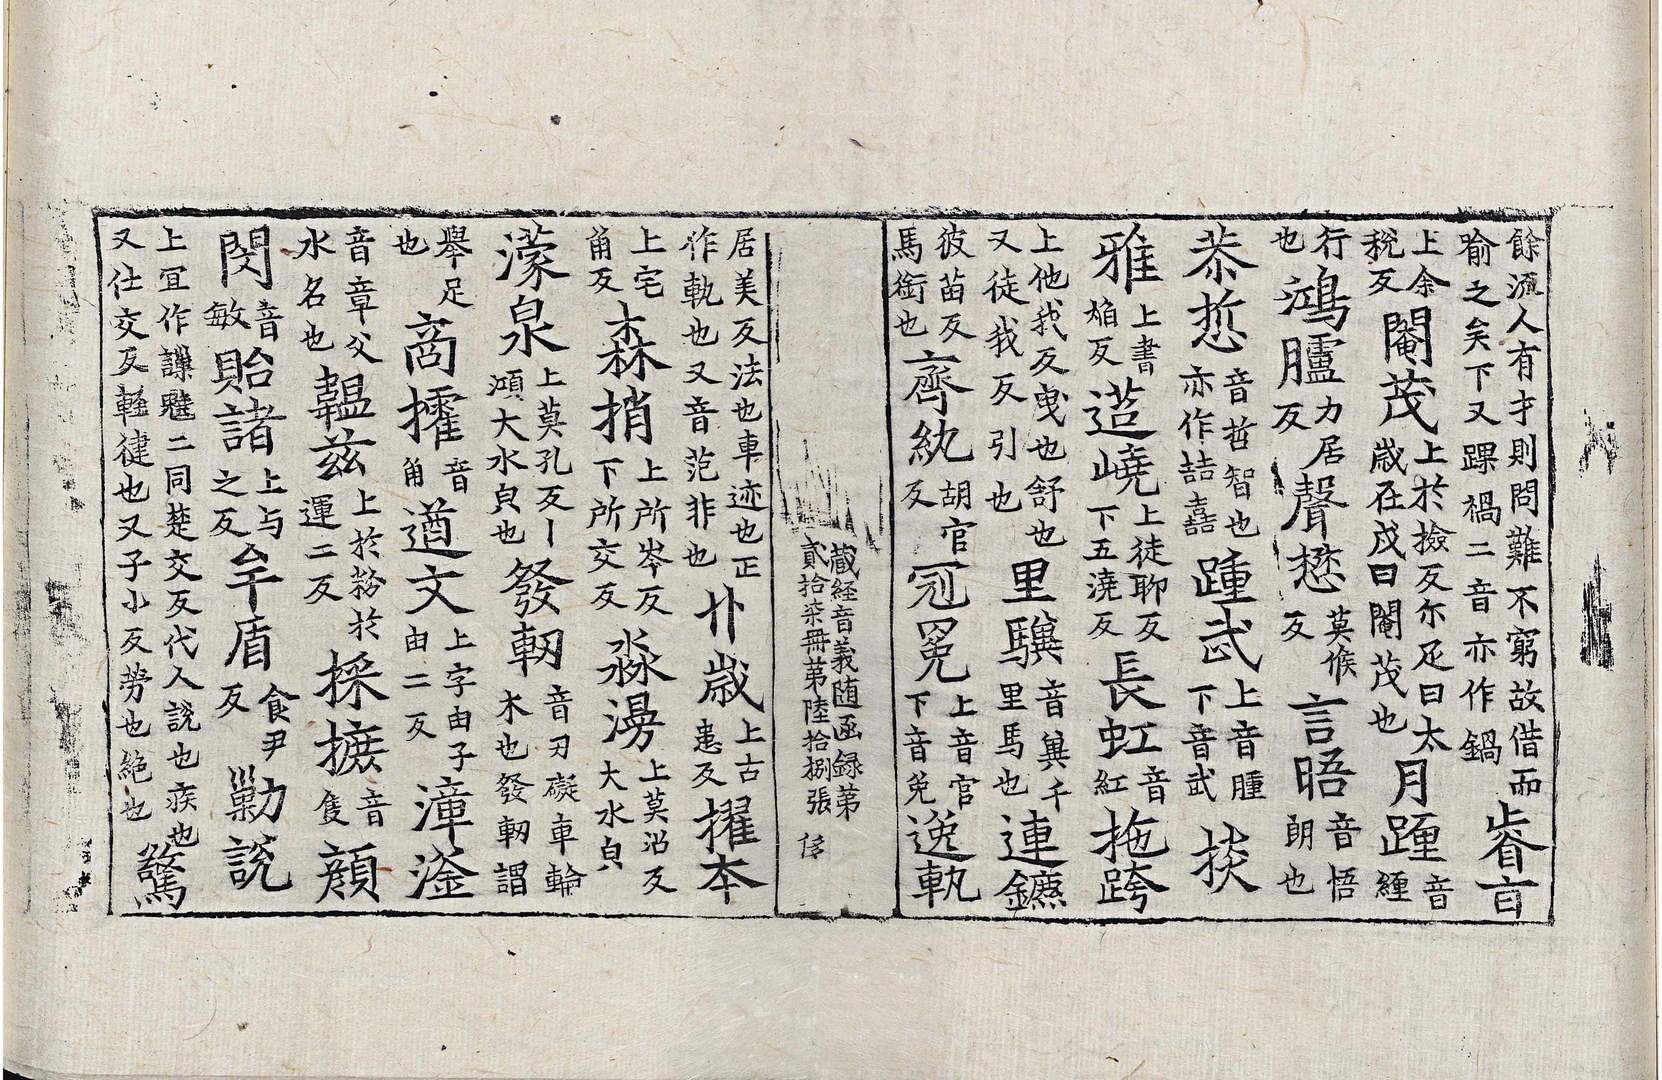 餘流人有才則問難不窮故借而
喻之矣下又踝禍二音亦作鍋
㫺言
上余
稅反
閹茂
上於撿反尔疋曰太
歲在戌曰閹茂也
月踵
音
緾
行
也
鴻臚
力居
反
聲懋
莫候
反
言晤
音悟
朗也
恭悊
音哲智也
亦作喆嘉
踵武
上音腫
下音武
掞
雅
上書
焰反
造嶢
上徒聊反
下五澆反
長虹
音
紅
拖跨
上他我反曳也舒也
又徒我反引也
里驥
音冀千
里馬也
連鑣
彼苗反
馬銜也
齊紈
胡官
反
冠冕
上音官
下音免
逸軌
藏経音義随函録第
貳拾柒冊第陸拾捌張
居美反法也車迹也正
作軌也又音范非也
卝歲
上古
患反
擢本
上宅
角反
森捎
上所岑反
下所交反
淼漫
上莫沼反
大水皃
濛泉
上莫孔反丨
澒大水皃也
發軔
音刃礙車輪
木也發軔謂
舉足
也
商㩴
音
角
遒文
上字由子
由二反
漳滏
音章父
水名也
韞兹
上於粉於
運二反
採摭
音
隻
顔
閔
音
敏
貽諸
上与
之反
𠦑盾
食尹
反
勦說
上宜作䜈魑二同楚交反代人說也疾也
又仕交反輕健也又子小反勞也絕也
驚